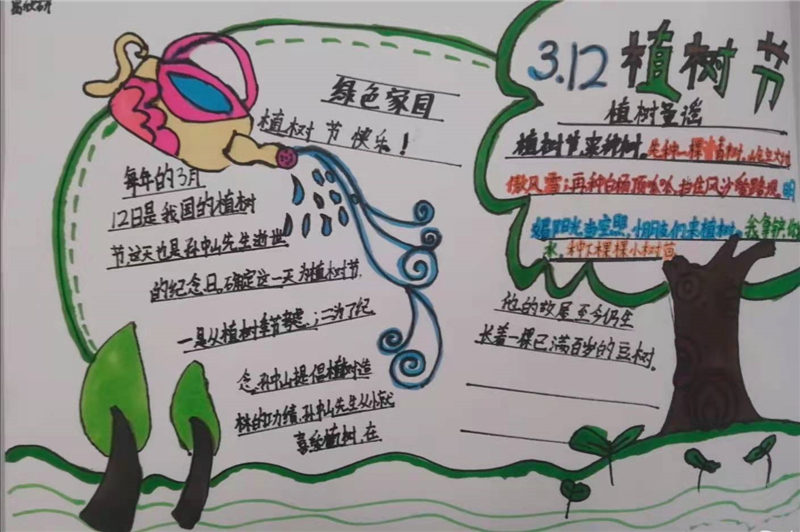 3.12 植树节
绿色家园
植树节快乐！
植树童谣
植树节,来种树.先种一棵青松树,
傲风雪;再种白杨顶呱呱,挡住风沙
阳光当空照,小朋友们来植树.我拿铲,你
水,种下棵棵小树苗
每年的3月
12日是我国的植树
节,这天也是孙中山先生逝世
的纪念日.确定这一天为植树节.
一是从植树季节考虑;二为了纪
念,孙中山提倡植树造
林的功绩.孙中山先生从小就
喜爱植树,在
他的故居至今仍生
长着一棵已满百岁的豆树.